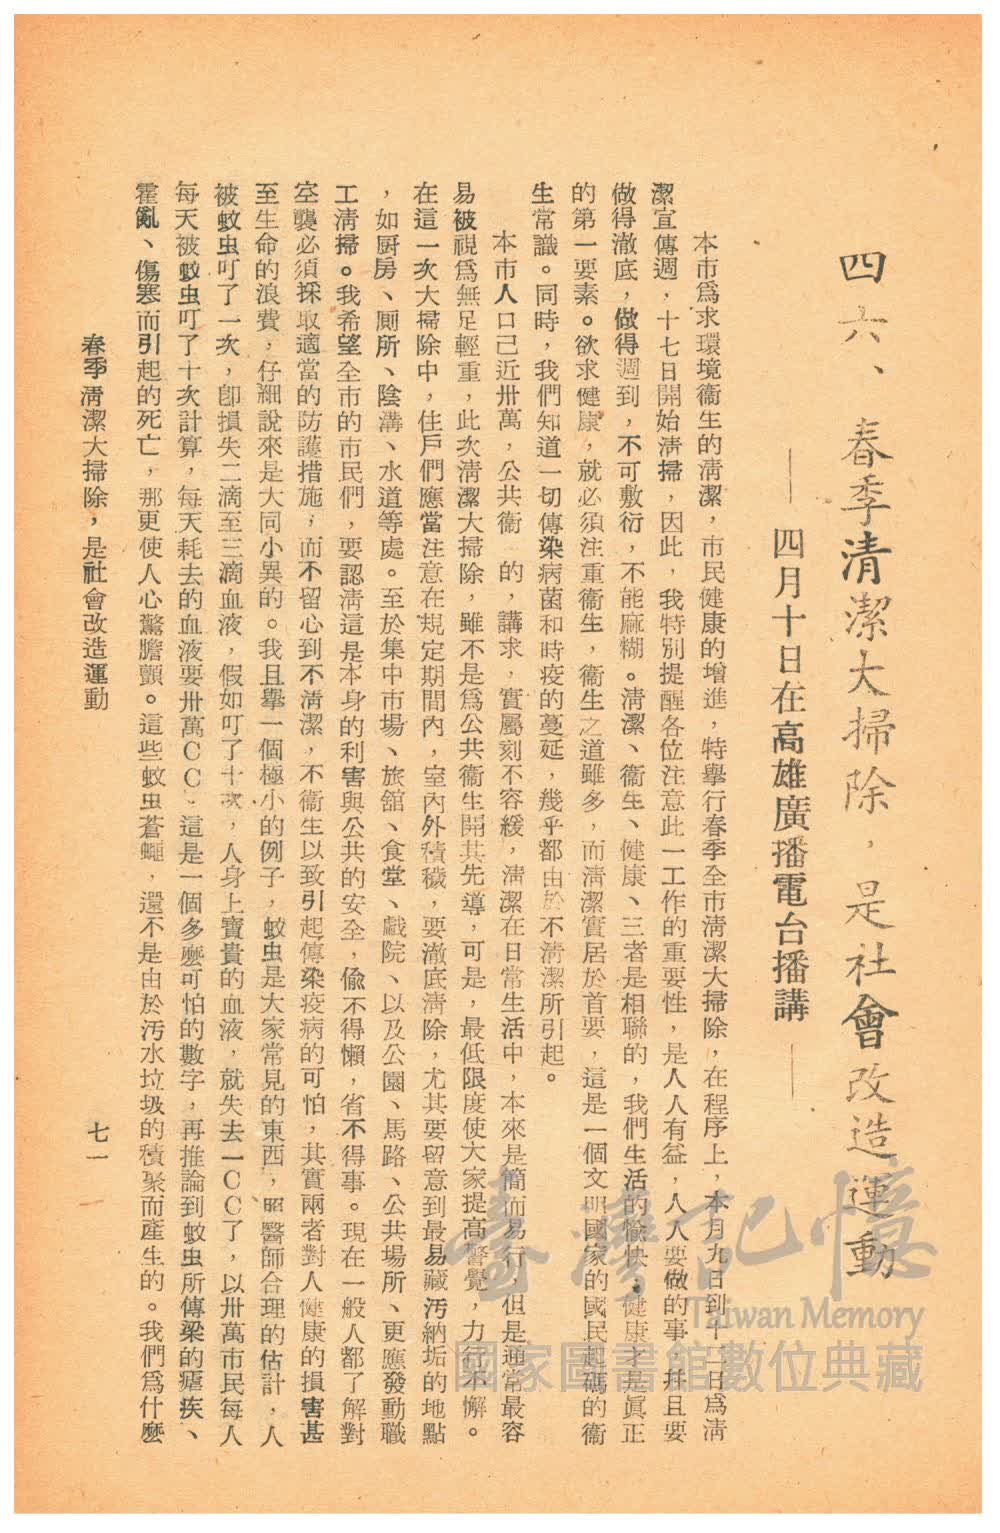 四六、春季清潔大掃除，是社會改造運動
——四月十日在高雄廣播電台播講——
本市爲求環境衞生的淸潔，市民健康的增進，特舉行春季全市淸潔大掃除，在程序上，本月九日到十二日爲淸
潔宣傳週，十七日開始淸掃，因此，我特別提醒各位注意此一工作的重要性，是人人有益，人人要做的事，幷且要
做得澈底，做得週到，不可敷衍，不能麻糊。淸潔、衞生、健康、三者是相聯的，我們生活的愉快，健康才是眞正
的第一要素。欲求健康，就必須注重衞生，衞生之道雖多，而淸潔實居於首要，這是一個文明國家的國民起碼的衞
生常識。同時，我們知道一切傳染病菌和時疫的蔓延，幾乎都由於不淸潔所引起。
本市人口己近卅萬，公共衞　的，講求，實屬刻不容緩，淸潔在日常生活中，本來是簡而易行，但是通常最容
易被視爲無足輕重，此次淸潔大掃除，雖不是爲公共衞生開其先導，可是，最低限度使大家提高警覺，力行不懈。
在這一次大掃除中，住戶們應當注意在規定期間內，室內外積穢，要澈底淸除，尤其要留意到最易藏汚納垢的地點
，如厨房、厠所、陰溝、水道等處。至於集中市場、旅舘、食堂、戲院、以及公園、馬路、公共場所、更應發動職
工淸掃。我希望全市的市民們，要認淸這是本身的利害與公共的安全，偸不得懶，省不得事。現在一般人都了解對
空襲必須採取適當的防護措施，而不留心到不淸潔，不衞生以致引起傳染疫病的可怕，其實兩者對人健康的損害甚
至生命的浪費，仔細說來是大同小異的。我且擧一個極小的例子，蚊虫是大家常見的東西，照醫師合理的估計，人
被蚊虫叮了一次，卽損失二滴至三滴血液，假如叮了十次，人身上寶貴的血液，就失去一CC了，以卅萬市民每人
每天被蚊虫叮了十次計算，每天耗去的血液要卅萬CC，這是一個多麽可怕的數字，再推論到蚊虫所傳染的瘧疾、
霍亂、傷寒而引起的死亡，那更使人心驚膽顫。這些蚊虫蒼蠅，還不是由於汚水垃圾的積聚而產生的。我們爲什麽
春季淸潔大掃除，是社會改造運動
七一
臺灣記憶
Taiwan Memory
國家圖書館數位典藏